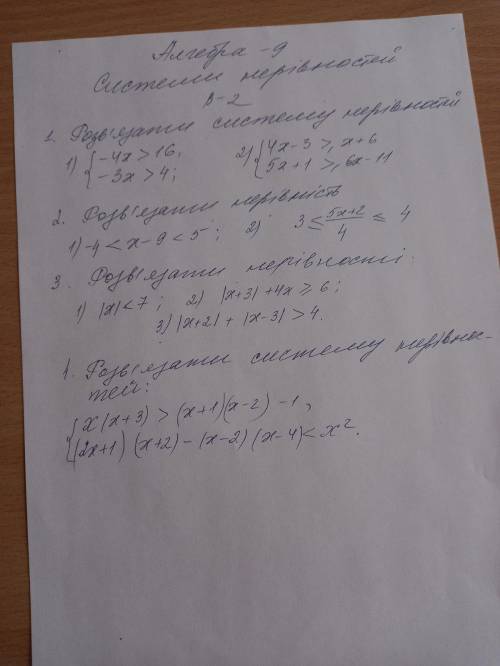 Алгебра - 9
Системи нерівностей
В-2
1. Розв'язати систему нерівностей
1) { -4x > 16, 2) { 4x-3 ≥ x+6
-3x > 4; 5x+1 ≥ 6x-11
2. Розв'язати нерівність
1) -4 < x-9 < 5; 2) 3 ≤ (5x+2)/4 ≤ 4
3. Розв'язати нерівності:
1) |x| < 7; 2) |x+3| + 4x ≥ 6;
3) |x+2| + |x-3| > 4.
4. Розв'язати систему нерівнос-
тей:
{ x(x+3) > (x+1)(x-2) - 1,
(2x+1)(x+2) - (x-2)(x-4) < x².